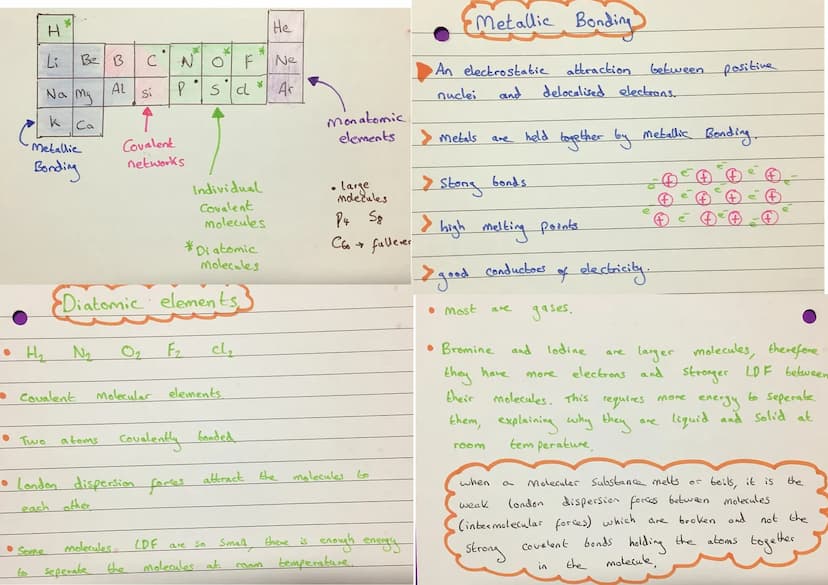 H *
He
Li Be B C • N * O * F * Ne
Na Mg Al Si P • S • Cl * Ar
K Ca
Metallic
Bonding
Covalent
networks
Individual
Covalent
molecules
* Diatomic
molecules
monatomic
elements
• large
molecules
P4 S8
C60 → fuller
Metallic Bonding
An electrostatic attraction between positive
nuclei and delocalised electrons.
> metals are held together by metallic Bonding.
> Stong bonds
> high melting points
> good conductors of electricity.
e- + + e- + e- + -
- + + + +
e- + e- + + e- + e-
Diatomic elements
• H2 N2 O2 F2 Cl2
• Covalent Molecular elements
• Two atoms covalently bonded
• London dispersion forces attract the molecules to
each other
• Some molecules. LDF are so small, there is enough energy
to seperate the molecules at room temperature.
• most are gases.
• Bromine and Iodine are larger molecules, therefore
they have more electrons and stronger LDF between
their molecules. This requires more energy to seperate
them, explaining why they are liquid and solid at
room temperature.
when a molecular substance melts or boils, it is the
weak london dispersion forces between molecules
(intermolecular forces) which are broken and not the
strong covalent bonds holding the atoms together
in the molecule.